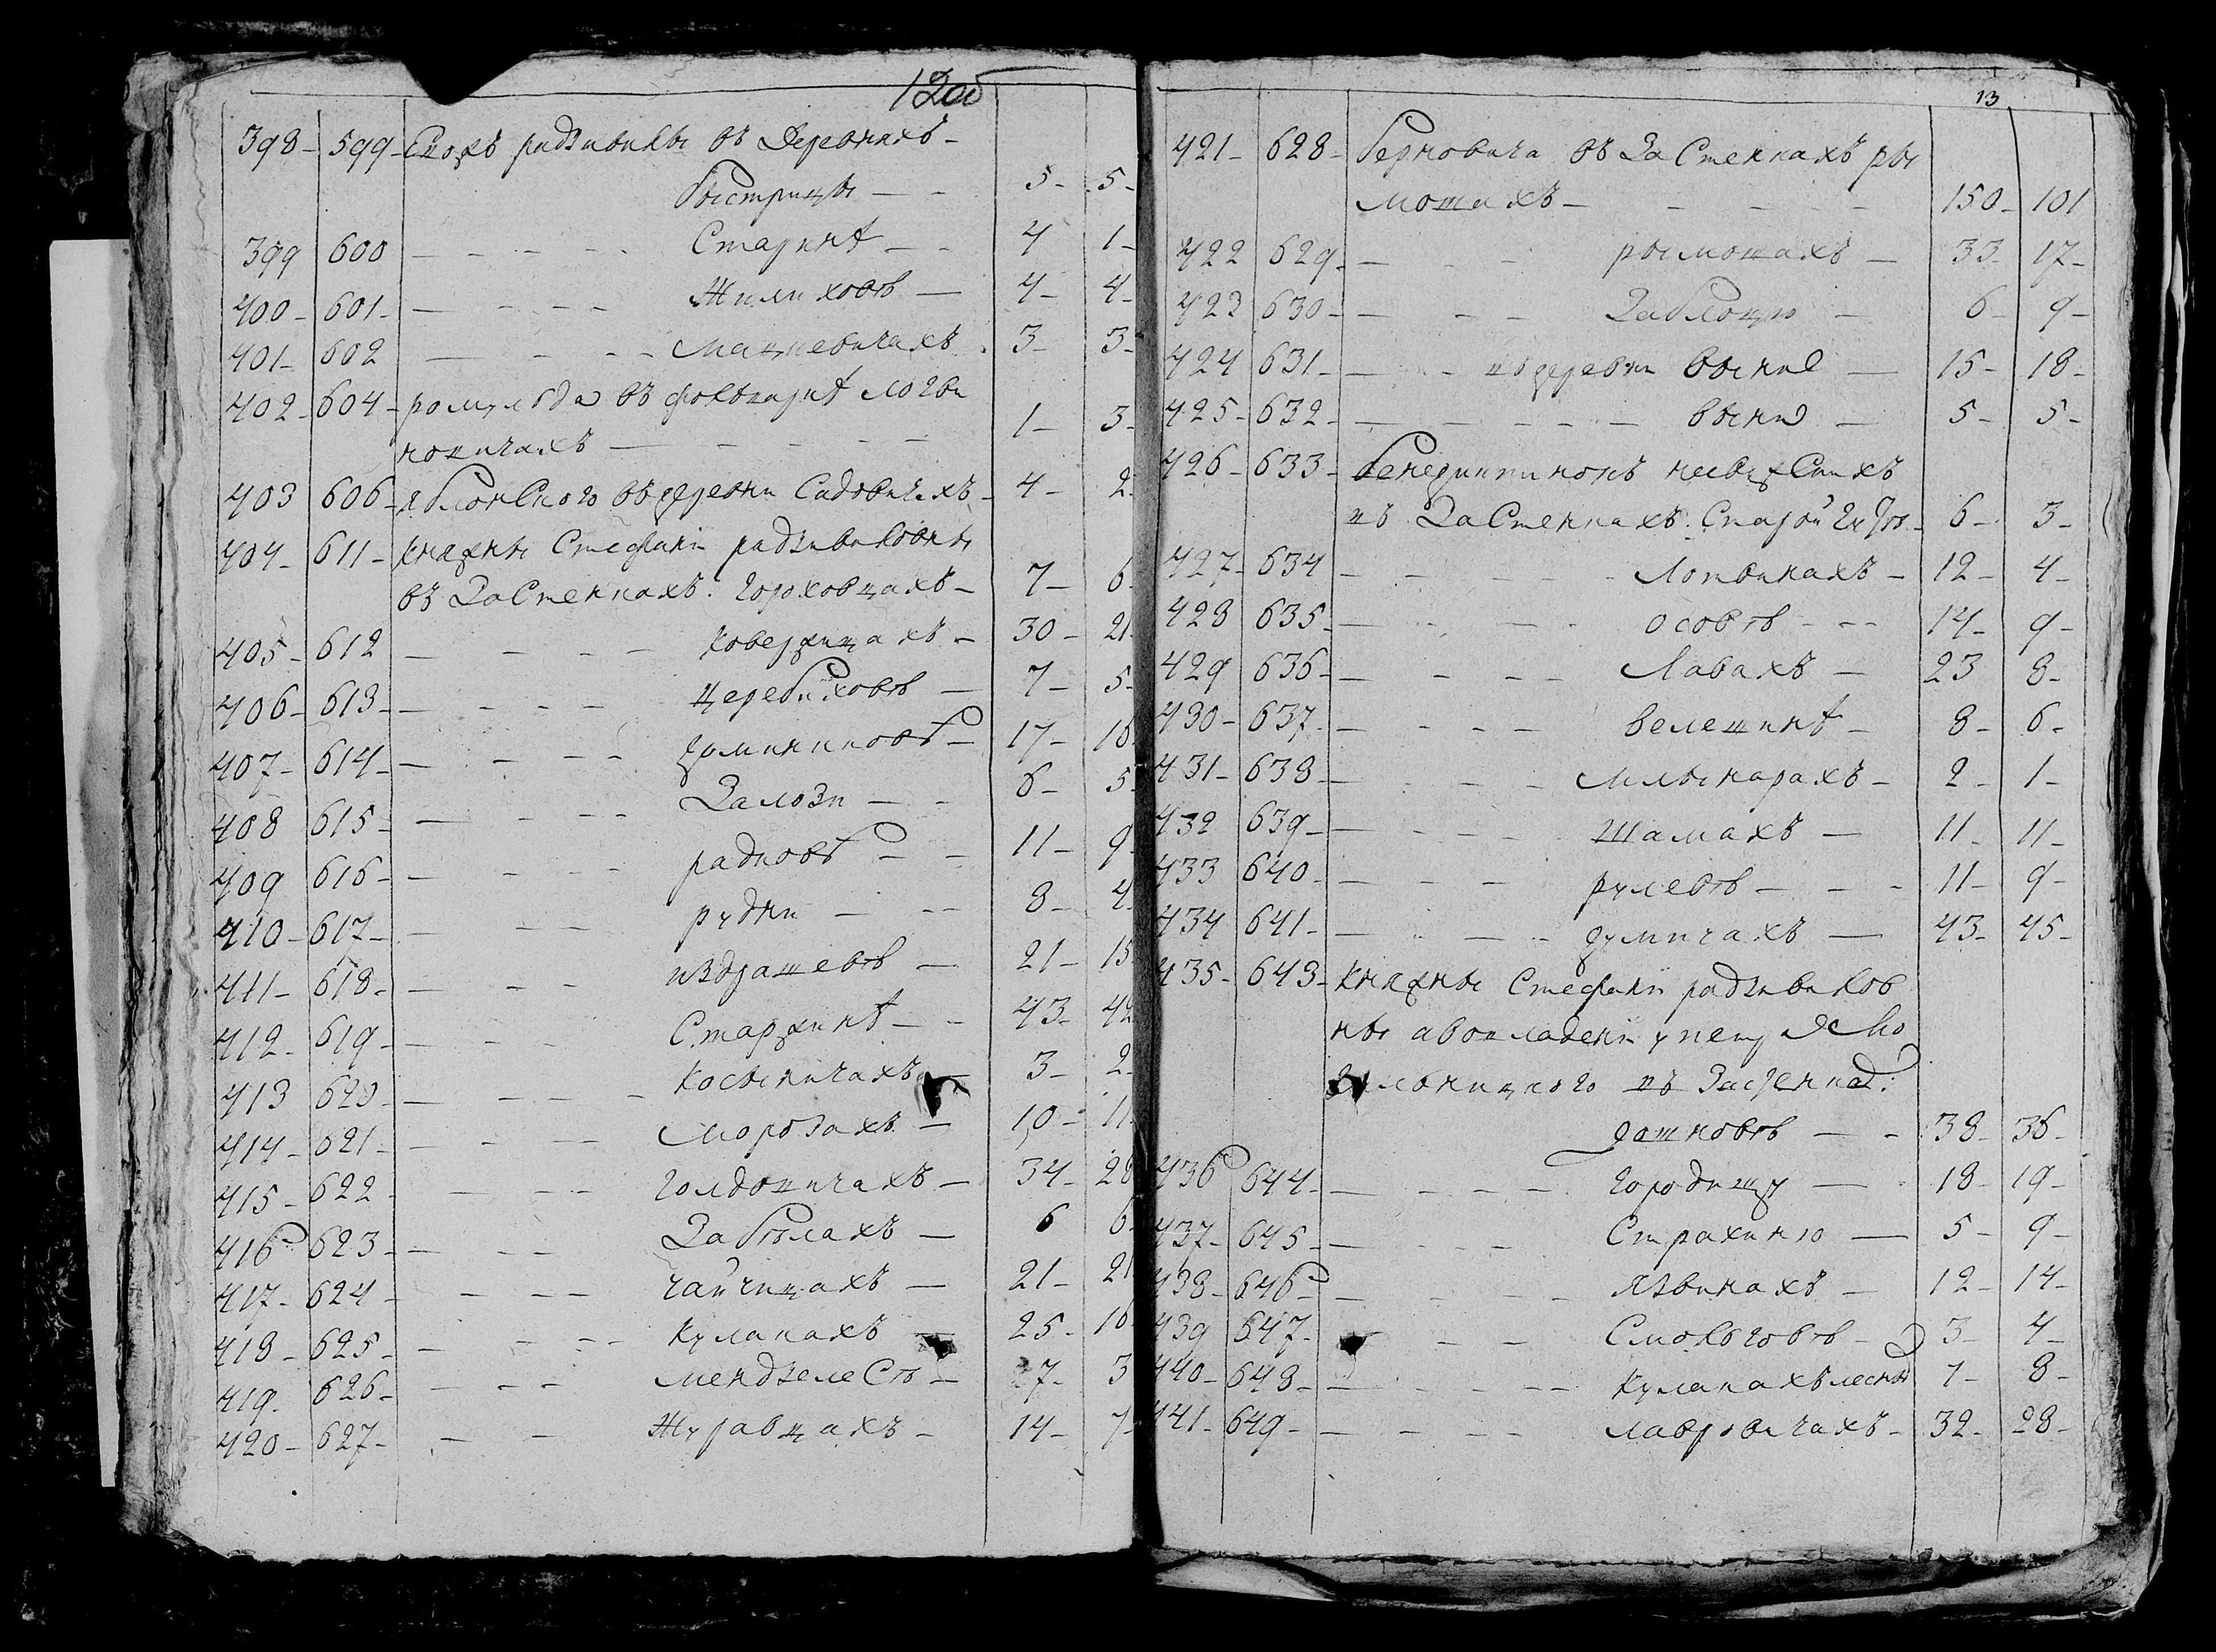 12 об
398 - 599 - Ево жъ радзивилы въ Деревнахъ -
быстрицы - - 5 - 5 -
399 600 - - - - Старинѣ - - 4 1 -
400 - 601 - - - - - Жилиховѣ - 4 - 4 -
401 - 602 - - - - Мацкевичахъ 3 - 3 -
402 - 604 - ромуальда въ фольваркѣ
- - - - - 1 - 3 -
403 606 - яблонского въ деревни Садовичахъ - 4 - 2
404 - 611 - княжны Стефаніи радзивиловны
въ Застенкахъ: Гороховцахъ - 7 - 6
405 - 612 - - - - Ковержицахъ - 30 - 21
406 - 613 - - - - - Церебиховѣ - 7 - 5 -
407 - 614 - - - - - думининовѣ - 17 - 18
408 615 - - - - - Залози - - 6 - 5
409 616 - - - - - радковѣ - - 11 - 9
410 - 617 - - - - рудни - - - 8 - 4
411 - 618 - - - - издрашевѣ - 21 - 15
412 - 619 - - - - Старжинѣ - - 43 - 42
413 620 - - - - - Косыничахъ - 3 - 2
414 - 621 - - - - Морозахъ - 10 - 11
415 - 622 - - - - Голдовичахъ - 34 - 28
416 623 - - - - Забѣлахъ - 6 6
417 - 624 - - - - Чайчицахъ - 21 - 21
418 - 625 - - - - - Кулаках ъ - 25 - 16
419 - 626 - - - - Мендзелесѣ - 7 - 3
420 - 627 - - - Журавцахъ - 14 - 7
13
421 - 628 - Герновича въ Застенкахъ ры
мошахъ - - - - - 150 - 101
422 629 - - - - рымошахъ - 33 - 17 -
423 630 - - - - Заблоцю - 6 - 9 -
424 631 - - - - въ деревни Выни - 15 - 18 -
425 - 632 - - - - - - выни - 5 - 5 -
426 - 633 - бенедиктинокъ несвѣжскихъ
въ Застенкахъ: Старой - 6 - 3 -
427 - 634 - - - - - Лотвинахъ - 12 - 4 -
428 635 - - - - - осовѣ - - - 14 - 9 -
429 636 - - - - - Лавахъ - 23 8 -
430 - 637 - - - - - велешинѣ - 8 - 6 -
431 - 638 - - - - - Млынарахъ - 2 - 1 -
432 639 - - - - - Шамахъ - 11 - 11 -
433 640 - - - - рулевѣ - - - 11 - 9 -
434 641 - - - - - думичахъ - 43 - 45 -
435 - 643 - Княжны Стефаніи радзивилов
ны авовладеніи у
въ Застенка:
дашковѣ - - 38 - 36 -
436 644 - - - - - Городищу - 18 - 19 -
437 - 645 - - - - - Страхиню - 5 - 9 -
438 - 646 - - - - - Язвинахъ - 12 - 14 -
439 647 - - - - Смольговѣ - 3 - 4 -
440 - 648 - - - - - Кулакахъ лесны 7 - 8 -
441 - 649 - - - - - Лавровичахъ - 32 - 28 -